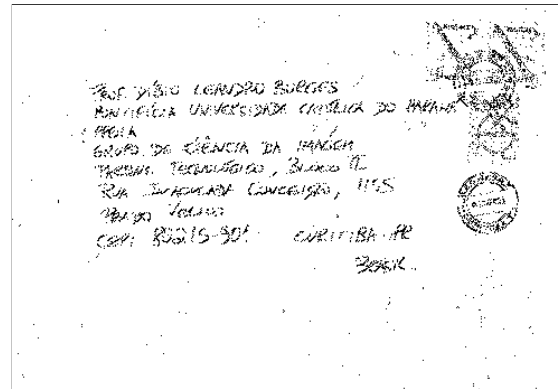 PROF. DÍBIO LEANDRO BORGES
PONTIFÍCIA UNIVERSIDADE CATÓLICA DO PARANÁ
PPGIA
GRUPO DE CIÊNCIA DA IMAGEM
PARQUE TECNOLÓGICO, BLOCO II
RUA IMACULADA CONCEIÇÃO, 1155
PRADO VELHO
CEP: 80215-901 CURITIBA - PR
BRASIL